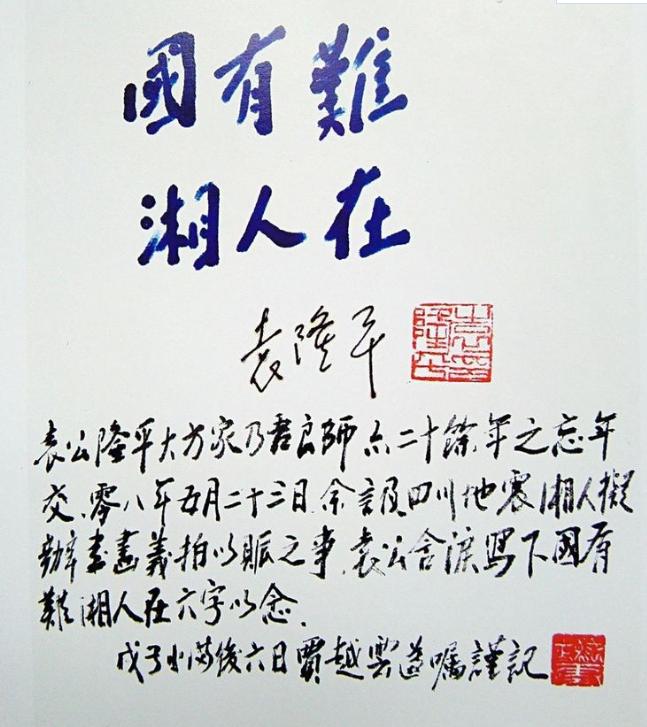 國有難
湘人在
袁隆平
袁公隆平大方家乃君良師亦二十餘年之忘年
交零八年五月二十三日余設四川地震湘人擬
辦書畫義拍以賑之事袁公含淚寫下國有
難湘人在六字以念
戊子小滿後六日賈越雲遵囑謹記